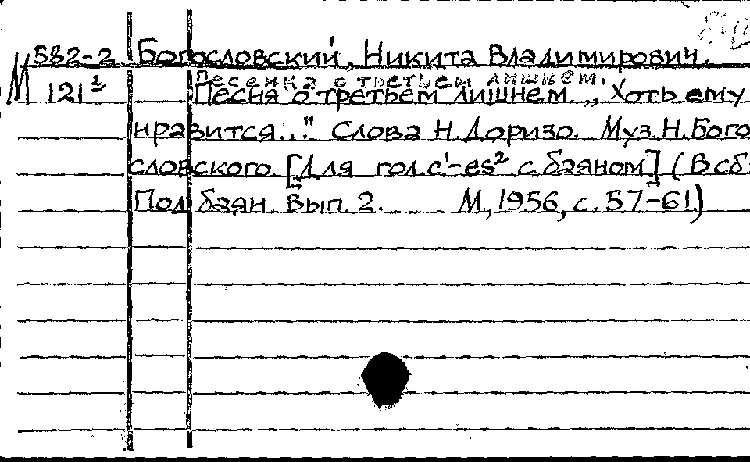 М 582-2 Богословский, Никита Владимирович.
Песенка о третьем лишнем.
121² Песня о третьем лишнем. „Хоть ему
нравится..." Слова Н. Доризо. Муз. Н. Бого
словского. [Для гол. c¹-es² с баяном] (В сб:
Под баян. Вып. 2. М, 1956, с. 57-61.)